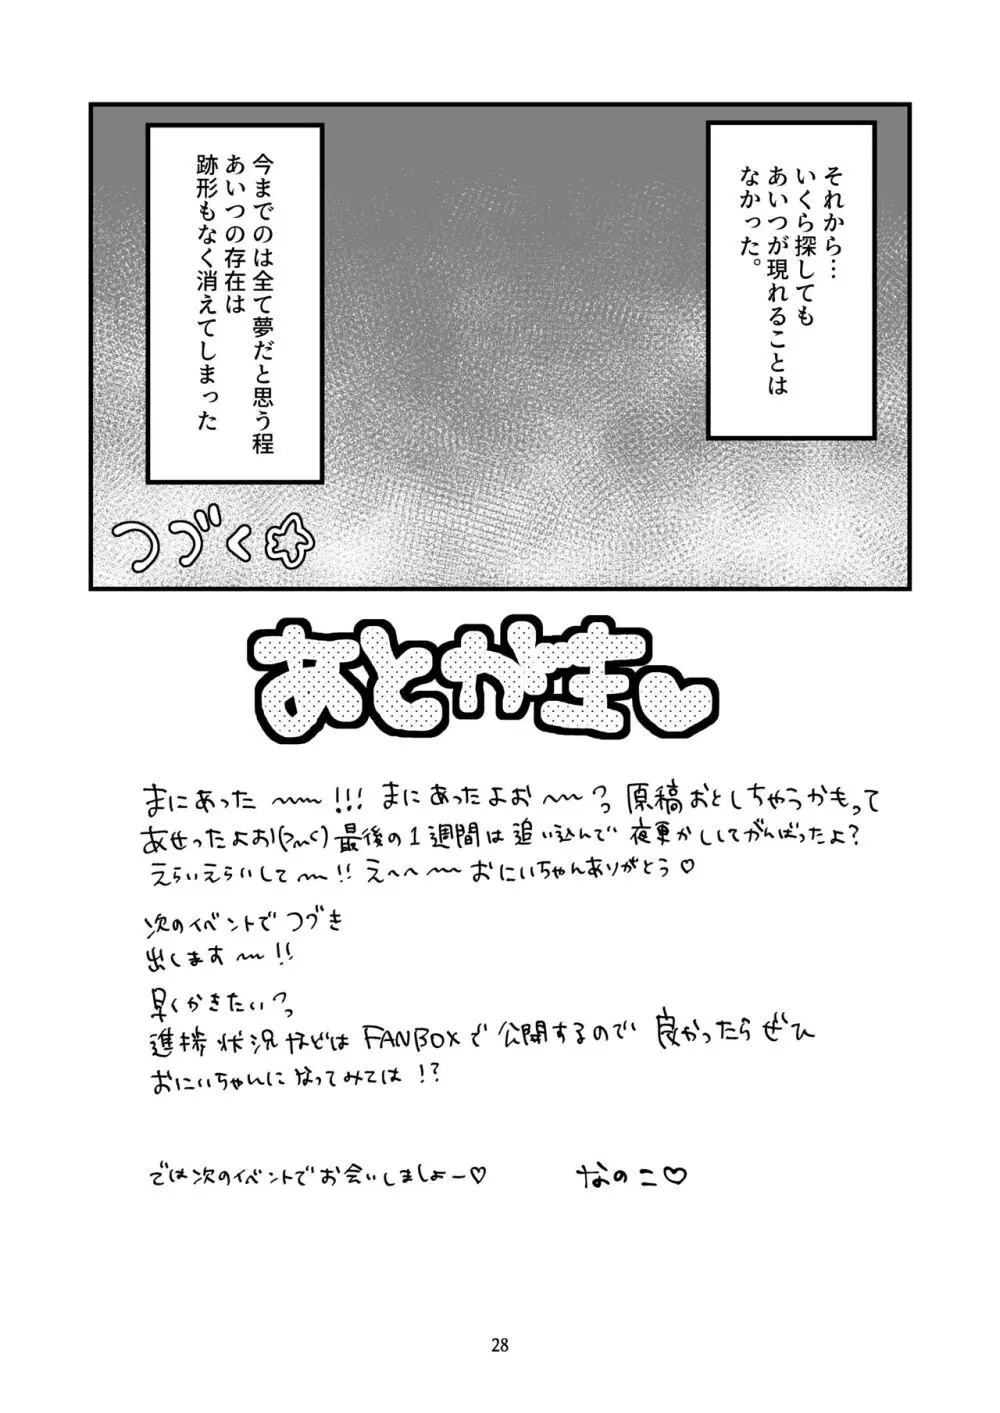 それから…
いくら探しても
あいつが現れることは
なかった。
今までのは全て夢だと思う程
あいつの存在は
跡形もなく消えてしまった
つづく☆
あとがき♥
まにあった〜〜!!! まにあったよお〜〜っ 原稿おとしちゃうかもって
あせったよお!(つ﹏<) 最後の1週間は追い込んで 夜更かししてがんばったよ?
えらいえらいして〜〜!! え〜へ〜〜 おにいちゃんありがとう♡
次のイベントで つづき
出します〜〜!!
早くかきたいっ
進捗状況などは FANBOXで 公開するので 良かったらぜひ
おにいちゃんになってみては!?
では次のイベントでお会いしましょー♡
なのこ♡
28